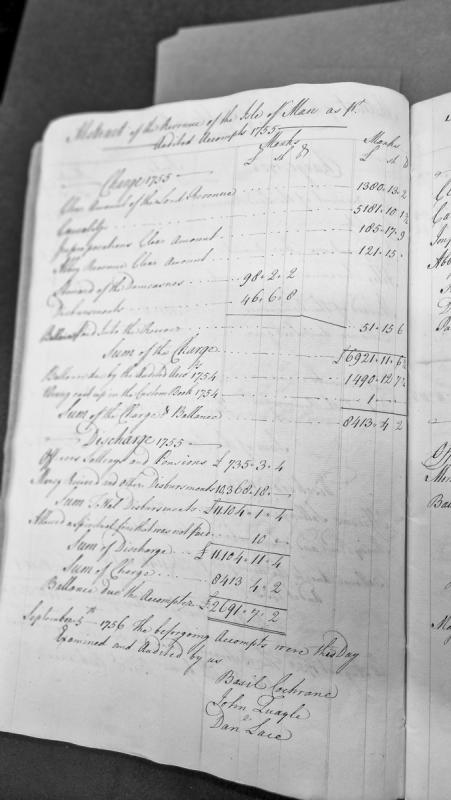 Abstract of the Revenue of the Isle of Man as pr.
Audited Accompts 1755
Manks Manks
£ sh d £ sh d
Charge 1755
Clear Amount of the Land Revenue 1380 . 13 . 2
Casualty 5181 . 10 . 1½
Impropriations Clear Amount 185 . 17 . 9
Abby Revenue Clear Amount 121 . 15 .
Steward of the Demeasnes 98 . 2 . 2
Disbursments 46 . 6 . 8
Ballance paid into the Revenue 51 . 15 6
Sum of the Charge £6921 . 11 . 6½
Ballance due by the Audited Accts 1754 1490 . 12 7½
Wrong cast up in the Custom Book 1754 1
Sum of the Charge & Ballance 8413 . 4 2
Discharge 1755
Officers Sallerys and Pensions £ 735 . 3 . 4
Money Received and other Disbursments 10,368 . 18 . –
Sum Total Disbursments £11104 . 1 . 4
Allowed a Spiritual fine that was not paid 10
Sum of Discharge £ 11104 . 11 . 4
Sum of Charge 8413 4 . 2
Ballance due the Accompter £ 2691 . 7 . 2
September 5th 1756 The beforgoing Accompts were this Day
Examined and Audited by us
Basil Cochrane
John Quayle
Danl Lace